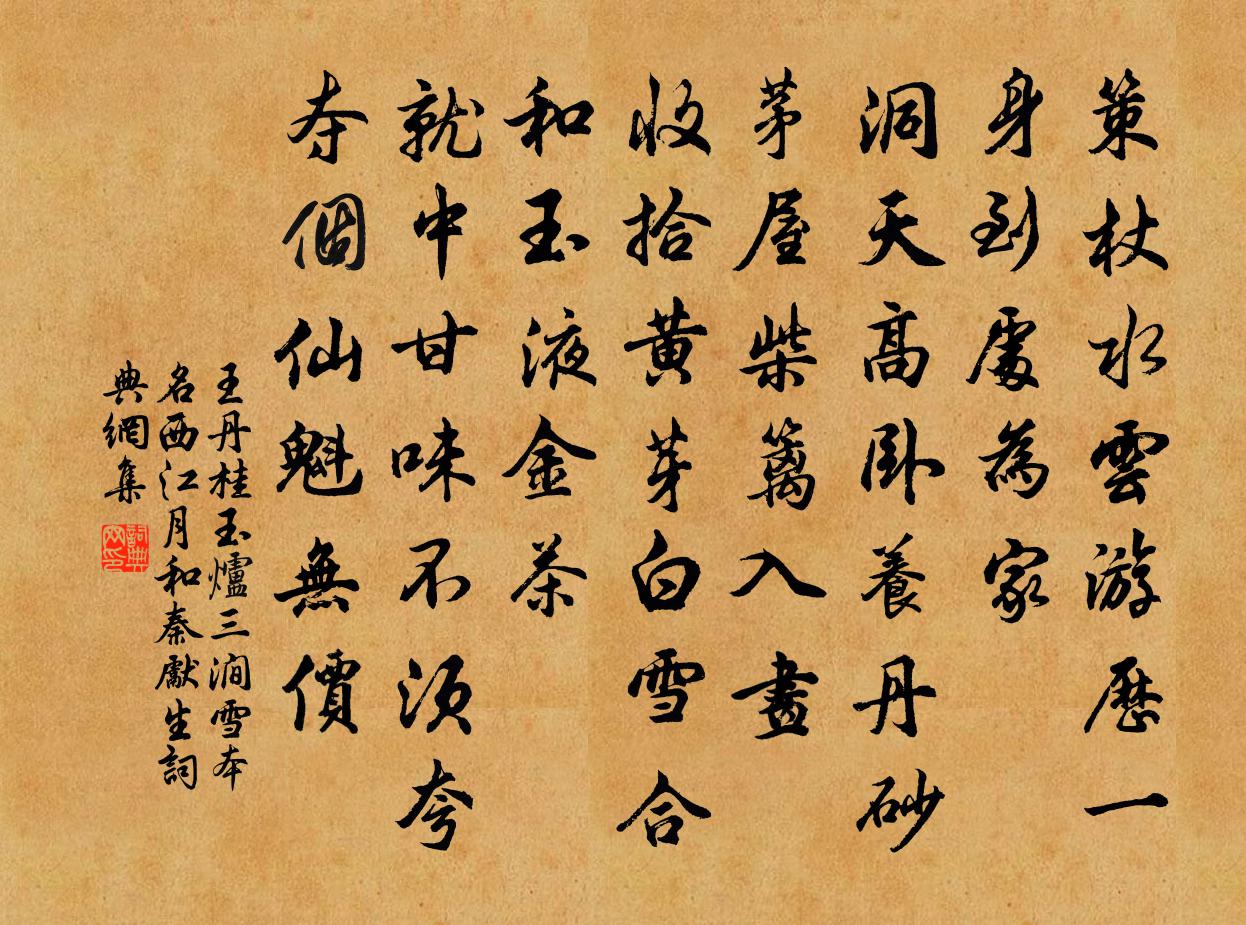 策杖水雲游歷一
身到處為家
洞天高卧養丹砂
茅屋柴籬入畫
收拾黃芽白雪合
和玉液金茶
就中甘味不須夸
夺個仙魁無價
王丹桂玉爐三澗雪本
名西江月和秦獻生詞
典網集
詞典
网印